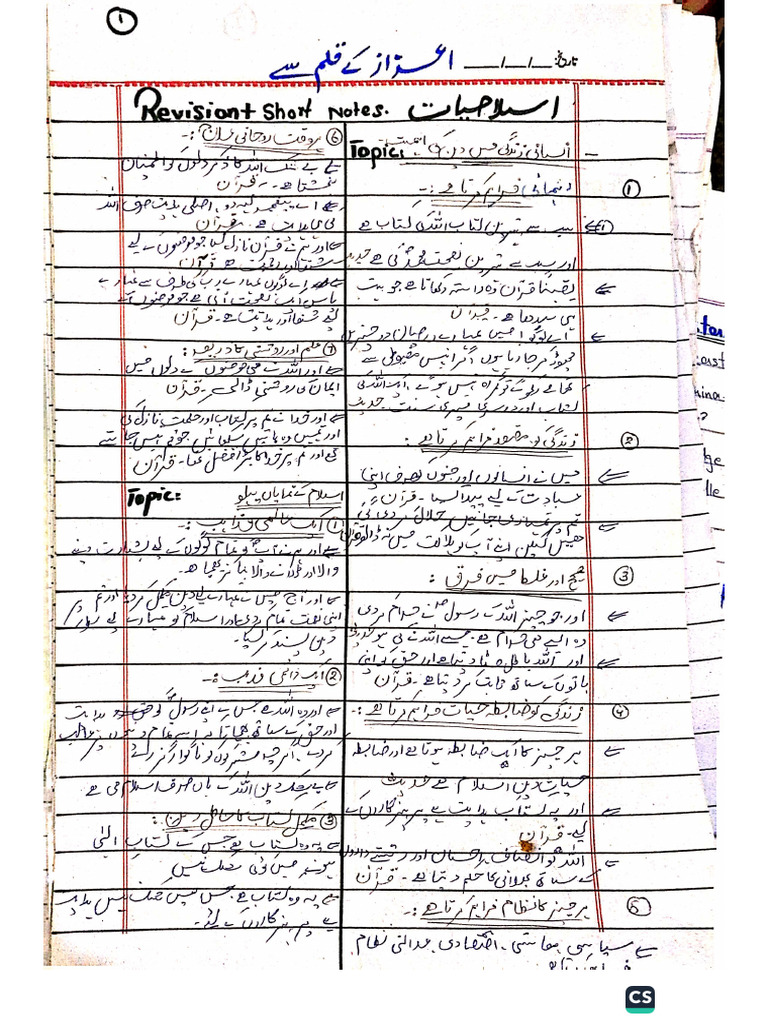 1
تاریخ: __/__/__
اعتزاز کے قلم سے
اسلامیات Revision+ Short Notes.
Topic: انسانی زندگی میں دین کی اہمیت
① رہنمائی فراہم کرتا ہے:-
سب سے بہترین کتاب اللہ کی کتاب ہے
اور سب سے بہترین نصیحت محمد کی ہے حدیث
یقیناً قرآن وہ راستہ دکھاتا ہے جو بہت
ہی سیدھا ہے۔ قرآن
اے لوگو! میں تمہارے درمیان دو چیزیں
چھوڑ کر جا رہا ہوں اگر انہیں مضبوطی سے
تھامے رہو تو گمراہ نہیں ہو گے، ایک اللہ کی
کتاب اور دوسرے میری سنت۔ حدیث
② زندگی کو مقصد فراہم کرتا ہے:-
میں نے انسانوں اور جنوں کو محض اپنی
عبادت کے لیے پیدا کیا۔ قرآن
③ صحیح اور غلط میں فرق:
اور جو چیز اللہ کے رسول نے حرام کر دی
وہ ایسے ہی حرام ہے جیسے اللہ نے کی ہو
اور اللہ باطل کو مٹا دیتا ہے اور حق کو اپنی
باتوں کے ساتھ ثابت کر دیتا ہے۔ قرآن
④ زندگی کو ضابطہ حیات فراہم کرتا ہے:-
ہر چیز کا ایک ضابطہ ہوتا ہے اور ضابطہ
حیات دین اسلام ہے حدیث
اور یہ کتاب ہدایت ہے پرہیزگاروں کے
لیے۔ قرآن
اللہ کو انصاف، احسان اور رشتے داروں
کے ساتھ بھلائی کا حکم دیتا ہے۔ قرآن
⑤ ہر چیز کا نظام فراہم کرتا ہے:-
سیاسی، معاشی، اقتصادی، عدالتی نظام
⑥ بروقت روحانی علاج:-
بے شک اللہ کا ذکر دلوں کو اطمینان
بخشتا ہے۔ قرآن
اے پیغمبر کہہ دو، اصلی ہدایت صرف اللہ
کی ہدایت ہے۔ قرآن
اور ہم نے قرآن نازل کیا جو مومنوں کے لیے
شفا اور رحمت ہے قرآن
اے لوگوں تمہارے رب کی طرف سے تمہارے
پاس ایک نصیحت آئی ہے جو مومنوں کے
لیے شفا اور ہدایت ہے۔ قرآن
⑦ علم اور روشنی کا ذریعہ:
اور اللہ نے ہی مومنوں کے دلوں میں
ایمان کی روشنی ڈالی ہے۔ قرآن
اور خدا نے تم پر کتاب اور حکمت نازل کی
اور تمہیں وہ باتیں سکھائیں جو تم نہیں جانتے
تھے اور تم پر خدا کا بڑا فضل تھا۔ قرآن
Topic: اسلام کے نمایاں پہلو
① ایک عالمی مذہب:-
اور ہم نے آپ کو تمام لوگوں کے لیے بشارت دینے
والا اور ڈرانے والا بنا کر بھیجا ہے
اور آج میں نے تمہارے لیے دین مکمل کر دیا اور تم پر
اپنی نعمت تمام کر دی اور اسلام کو تمہارے لیے بطور
دین پسند کیا۔
② ایک دائمی مذہب:-
اور وہ اللہ ہے جس نے اپنے رسول کو ہدایت
اور حق کے ساتھ بھیجا تاکہ اسے تمام دینوں پر غالب
کر دے۔ اگرچہ مشرکوں کو ناگوار گزرے
بے شک دین اللہ کے ہاں صرف اسلام ہی ہے
③ مکمل کتاب کا حامل دین:
یہ وہ کتاب ہے جس کے کتاب الٰہی
ہونے میں کوئی شک نہیں
یہ وہ کتاب ہے جس میں شک نہیں ہدایت
ہے پرہیزگاروں کے لیے۔
CS